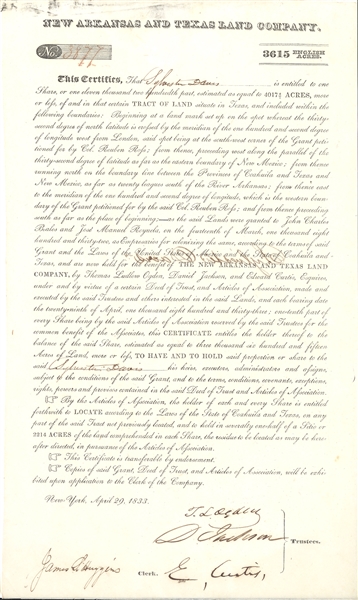 NEW ARKANSAS AND TEXAS LAND COMPANY.
No.
3615 ENGLISH ACRES.
This Certifies, That Sylvester Davis is entitled to one
Share, or one eleven thousand two hundredth part, estimated as equal to 4017½ ACRES, more
or less, of and in that certain TRACT OF LAND situate in Texas, and included within the
following boundaries: Beginning at a land mark set up on the spot whereat the thirty-
second degree of north latitude is crossed by the meridian of the one hundred and second degree
of longitude west from London, said spot being at the south-west corner of the Grant peti-
tioned for by Col. Reuben Ross; from thence, proceeding west along the parallel of the
thirty-second degree of latitude as far as the eastern boundary of New Mexico; from thence
running north on the boundary line between the Provinces of Coahuila and Texas and
New Mexico, as far as twenty leagues south of the River Arkansas; from thence east
to the meridian of the one hundred and second degree of longitude, which is the western bounda-
ry of the Grant petitioned for by the said Col. Reuben Ross; and from thence proceeding
south as far as the place of beginning;—as the said Lands were granted to John Charles
Beales and José Manuel Royuela, on the fourteenth of March, one thousand eight
hundred and thirty-two, as Empresarios for colonizing the same, according to the terms of said
Grant and the Laws of the United States of Mexico and the State of Coahuila and
Texas, and are now held for the THE NEW ARKANSAS AND TEXAS LAND
COMPANY, by Thomas Ludlow Ogden, Daniel Jackson, and Edward Curtis, Esquires,
under and by virtue of a certain Deed of Trust, and Articles of Association, made and
executed by the said Trustees and others interested in the said Lands, and each bearing date
the twenty-ninth of April, one thousand eight hundred and thirty-three; one-tenth part of
every Share being by the said Articles of Association reserved by the said Trustees for the
common benefit of the Associates, this CERTIFICATE entitles the holder thereof to the
balance of the said Share, estimated as equal to three thousand six hundred and fifteen
Acres of Land, more or less, TO HAVE AND TO HOLD said proportion or share to the
said Sylvester Davis his heirs, executors, administrators or assigns,
subject to the conditions of the said Grant, and to the terms, conditions, covenants, exceptions,
rights, powers and provisos contained in the said Deed of Trust and Articles of Association.
☞ By the Articles of Association, the holder of each and every Share is entitled
forthwith to LOCATE according to the Laws of the State of Coahuila and Texas, on any
part of the said Tract not previously located, and to hold in severalty one-half of a Sitio or
2214 ACRES of the land comprehended in each Share, the residue to be located as may be here-
after directed, in pursuance of the Articles of Association.
☞ This Certificate is transferable by endorsement.
☞ Copies of said Grant, Deed of Trust, and Articles of Association, will be exhi-
bited upon application to the Clerk of the Company.
New-York, April 29, 1833.
T. L. Ogden
D Jackson
Trustees.
James D Huggins Clerk.
E. Curtis,